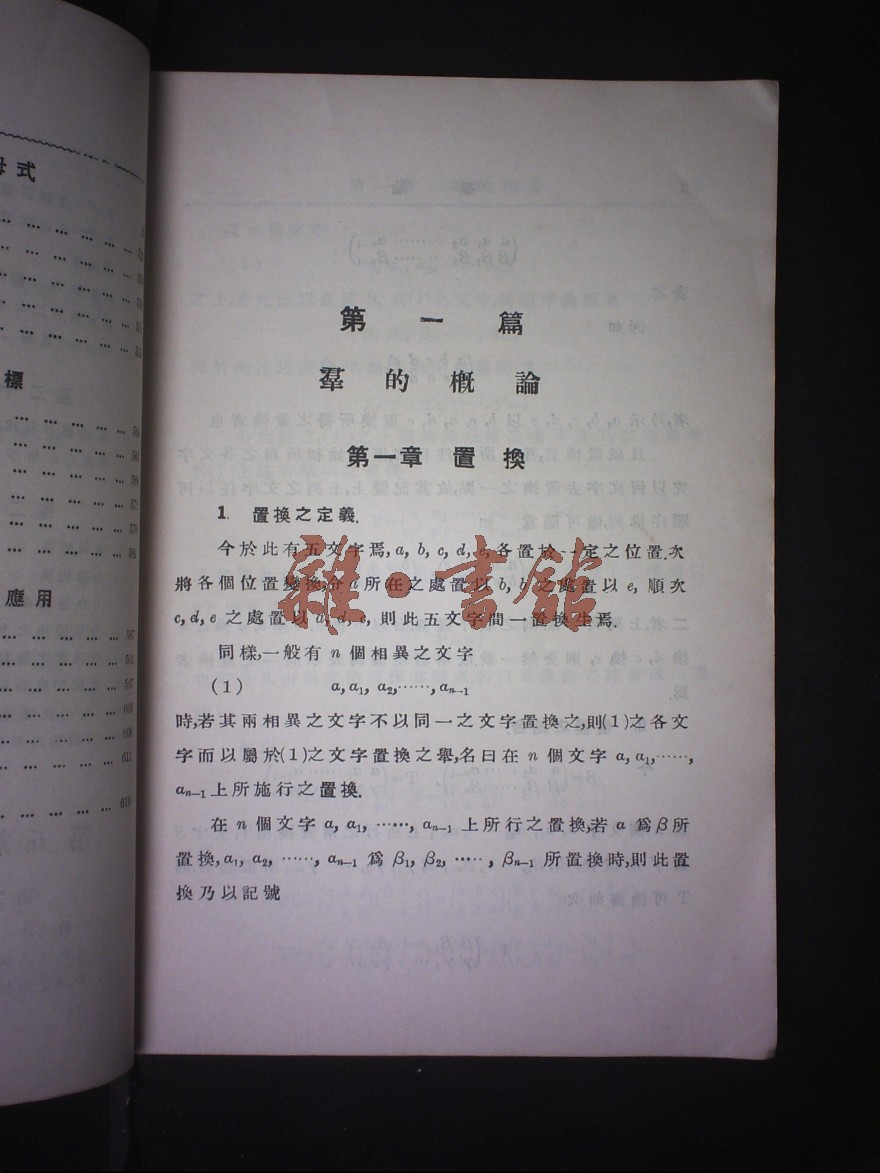 母式
標
應用
第一篇
羣的概論
第一章 置換
1. 置換之定義.
今於此有五文字焉,a, b, c, d, e, 各置於一定之位置.次
將各個位置變換,令 a 所在之處置以 b, b 之處置以 e, 順次
c, d, e 之處置以 a, d, c, 則此五文字間一置換生焉.
同樣,一般有 n 個相異之文字
(1) α, α₁, α₂,……, αₙ₋₁
時,若其兩相異之文字不以同一之文字置換之,則(1)之各文
字而以屬於(1)之文字置換之舉,名曰在 n 個文字 α, α₁,……,
αₙ₋₁ 上所施行之置換.
在 n 個文字 α, α₁, ……, αₙ₋₁ 上所行之置換,若 α 爲 β 所
置換, α₁, α₂, ……, αₙ₋₁ 爲 β₁, β₂, ……, βₙ₋₁ 所置換時,則此置
換乃以記號
雜·書館